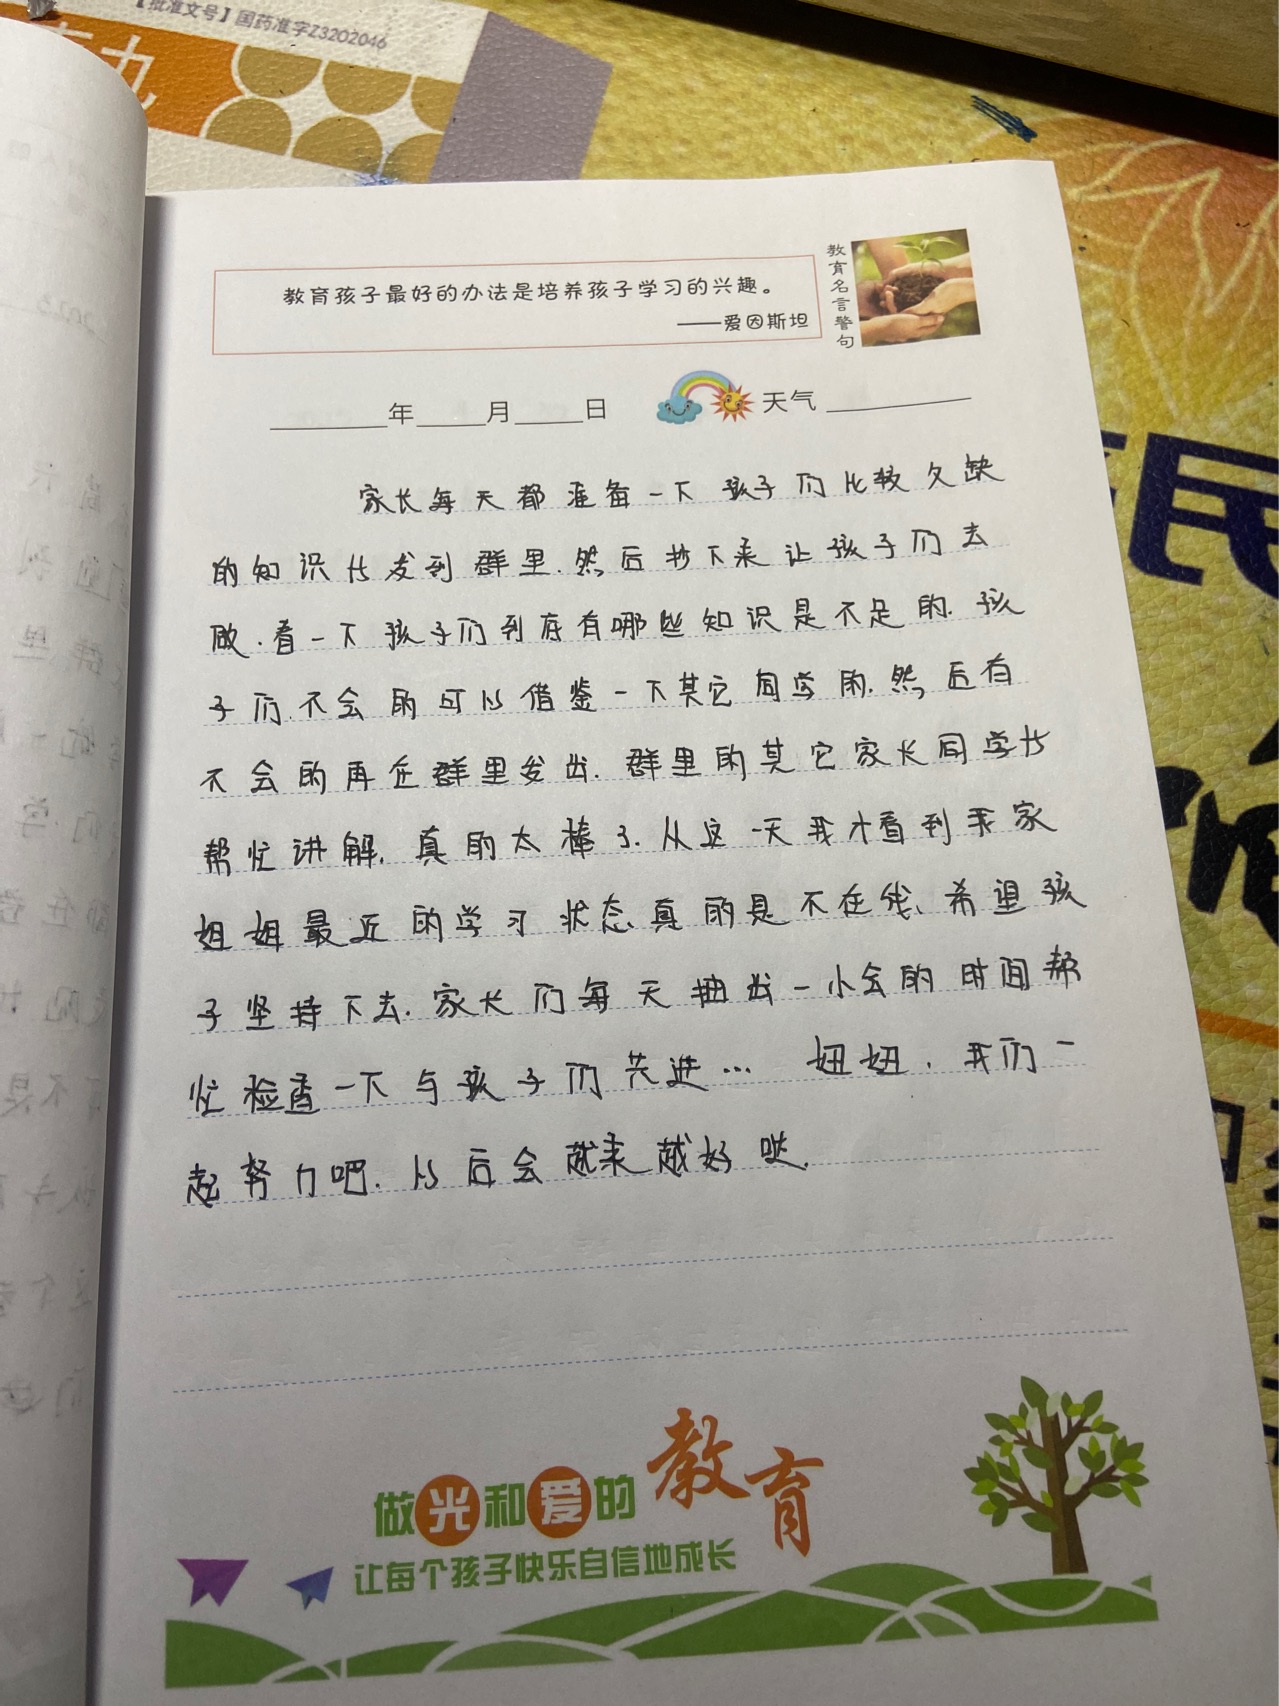 【批准文号】国药准字Z3202046
教育孩子最好的办法是培养孩子学习的兴趣。
——爱因斯坦
教育名言警句
年 月 日 天气
家长每天都准备一下孩子们比较欠缺
的知识 发到群里.然后抄下来让孩子们去
做.看一下孩子们到底有哪些知识是不足的.孩
子们.不会的可以借鉴一下其它同学的.然后有
不会的再在群里发出.群里的其它家长同学
帮忙讲解.真的太棒了.从这一天我才看到我家
妞妞最近的学习状态真的是不在线.希望孩
子坚持下去.家长们每天抽出一小会的时间帮
忙检查一下与孩子们共进… 妞妞.我们一
起努力吧.以后会越来越好哒.
做光和爱的教育
让每个孩子快乐自信地成长